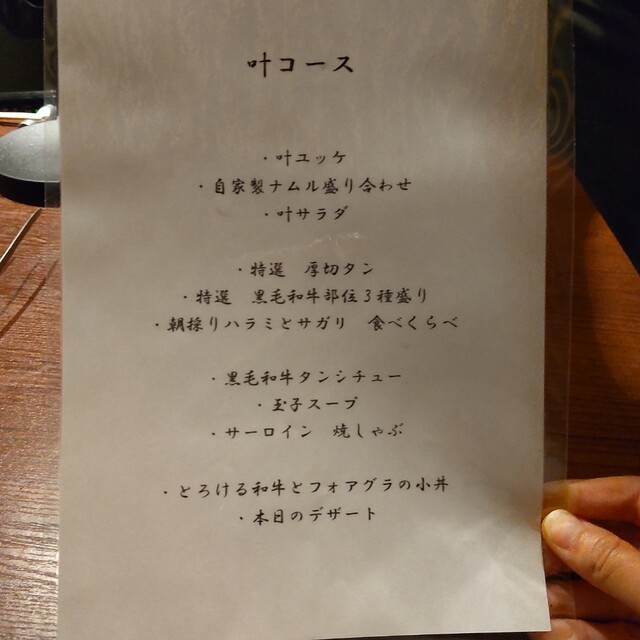 叶コース
・叶ユッケ
・自家製ナムル盛り合わせ
・叶サラダ
・特選 厚切タン
・特選 黒毛和牛部位3種盛り
・朝採りハラミとサガリ 食べくらべ
・黒毛和牛タンシチュー
・玉子スープ
・サーロイン 焼しゃぶ
・とろける和牛とフォアグラの小丼
・本日のデザート